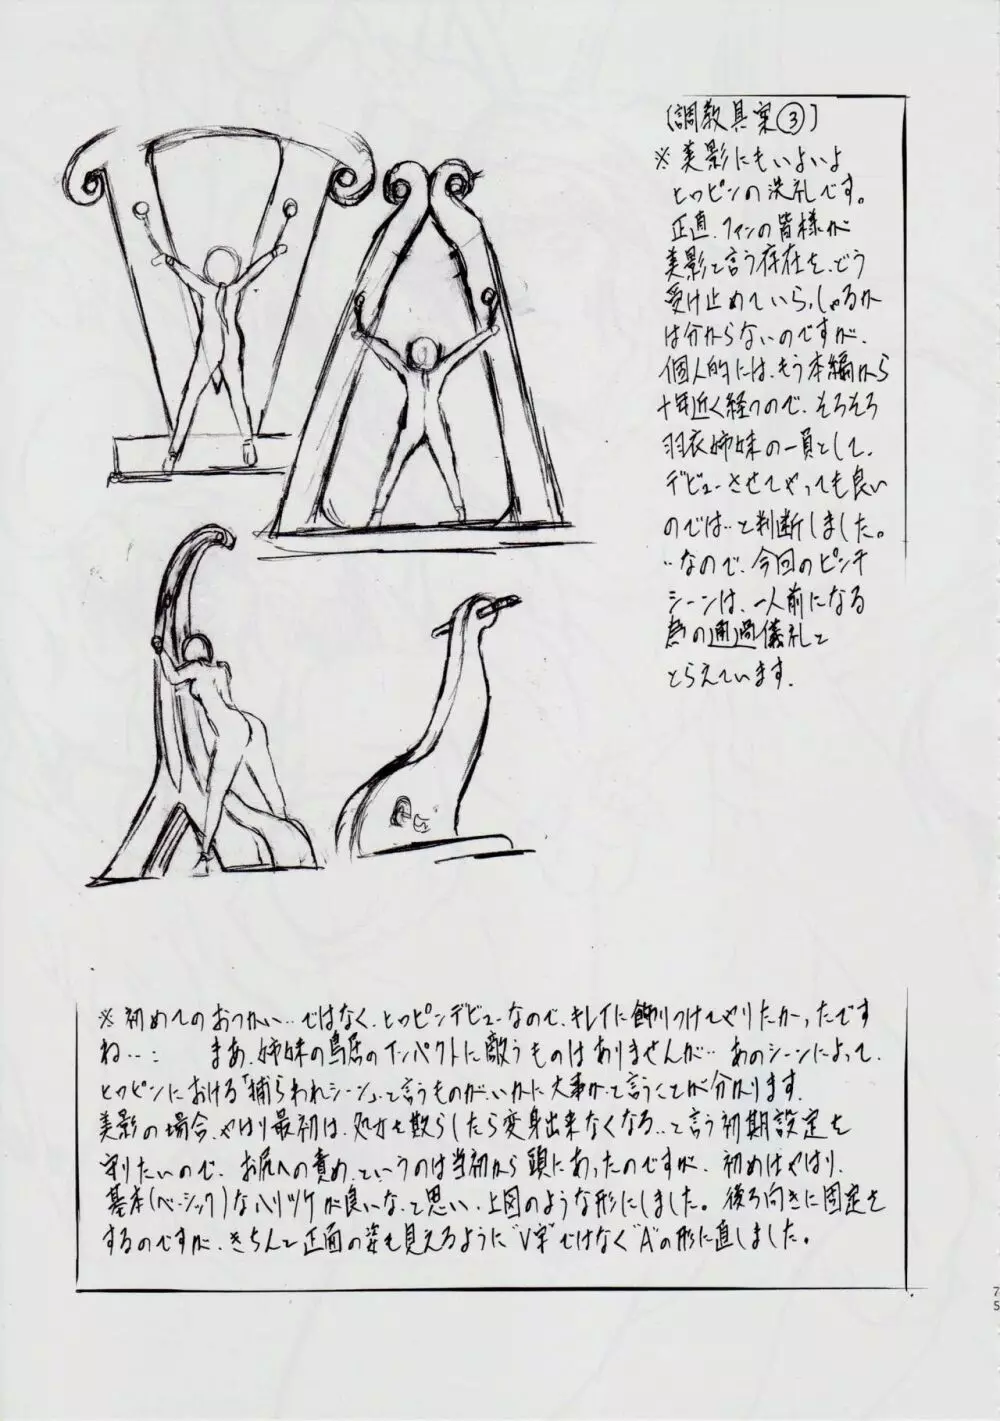 [調教具案③]
※美影にもいよいよ
ヒロピンの洗礼です。
正直、ファンの皆様が
美影と言う存在を、どう
受け止めていらっしゃるか
は分からないのですが、
個人的には、もう本編から
十年近く経つので、そろそろ
羽衣姉妹の一員として、
デビューさせてやっても良い
のでは‥と判断しました。
‥なので、今回のピンチ
シーンは、一人前になる
為の通過儀礼と
とらえています.
※初めてのおつかい…ではなく、ヒロピンデビューなので、キレイに飾りつけてやりたかったです
ね…: まあ、姉妹の鳥居のインパクトに敵うものはありませんが‥あのシーンによって、
ヒロピンにおける「捕らわれシーン」と言うものが、いかに大事かって言うことが分かります.
美影の場合、やはり最初は、処女を散らしたら変身出来なくなる‥と言う初期設定を
守りたいので、お尻への責め、というのは当初から頭にあったのですが、初めはやはり、
基本(ベーシック)なハリツケが良いな、と思い、上図のような形にしました。後ろ向きに固定を
するのですが、きちんと正面の姿も見えるように"V字"ではなく"A"の形に直しました。
75